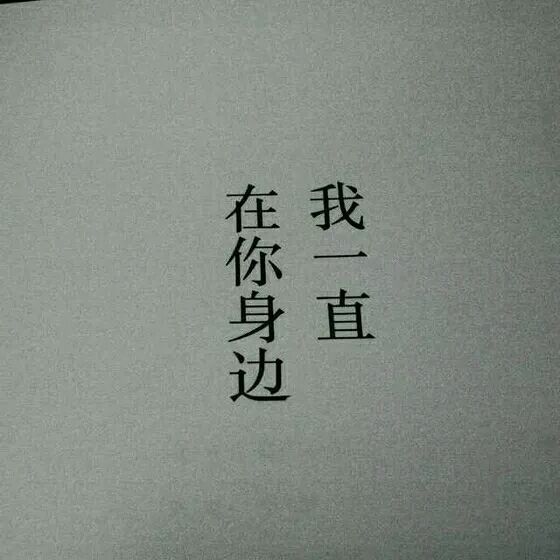 我一直
在你身边